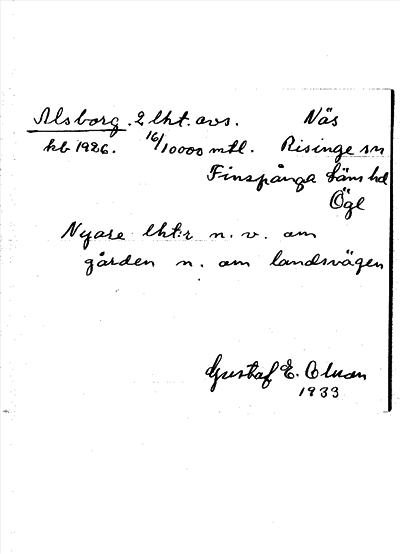 Alsborg. 2 lht. avs. Näs
kb 1926. 16/10000 mtl. Risinge sn
Finspånga läns hd
Ögl
Nyare lht:r n. v. om
gården n. om landsvägen
Gustaf E. Olson
1933